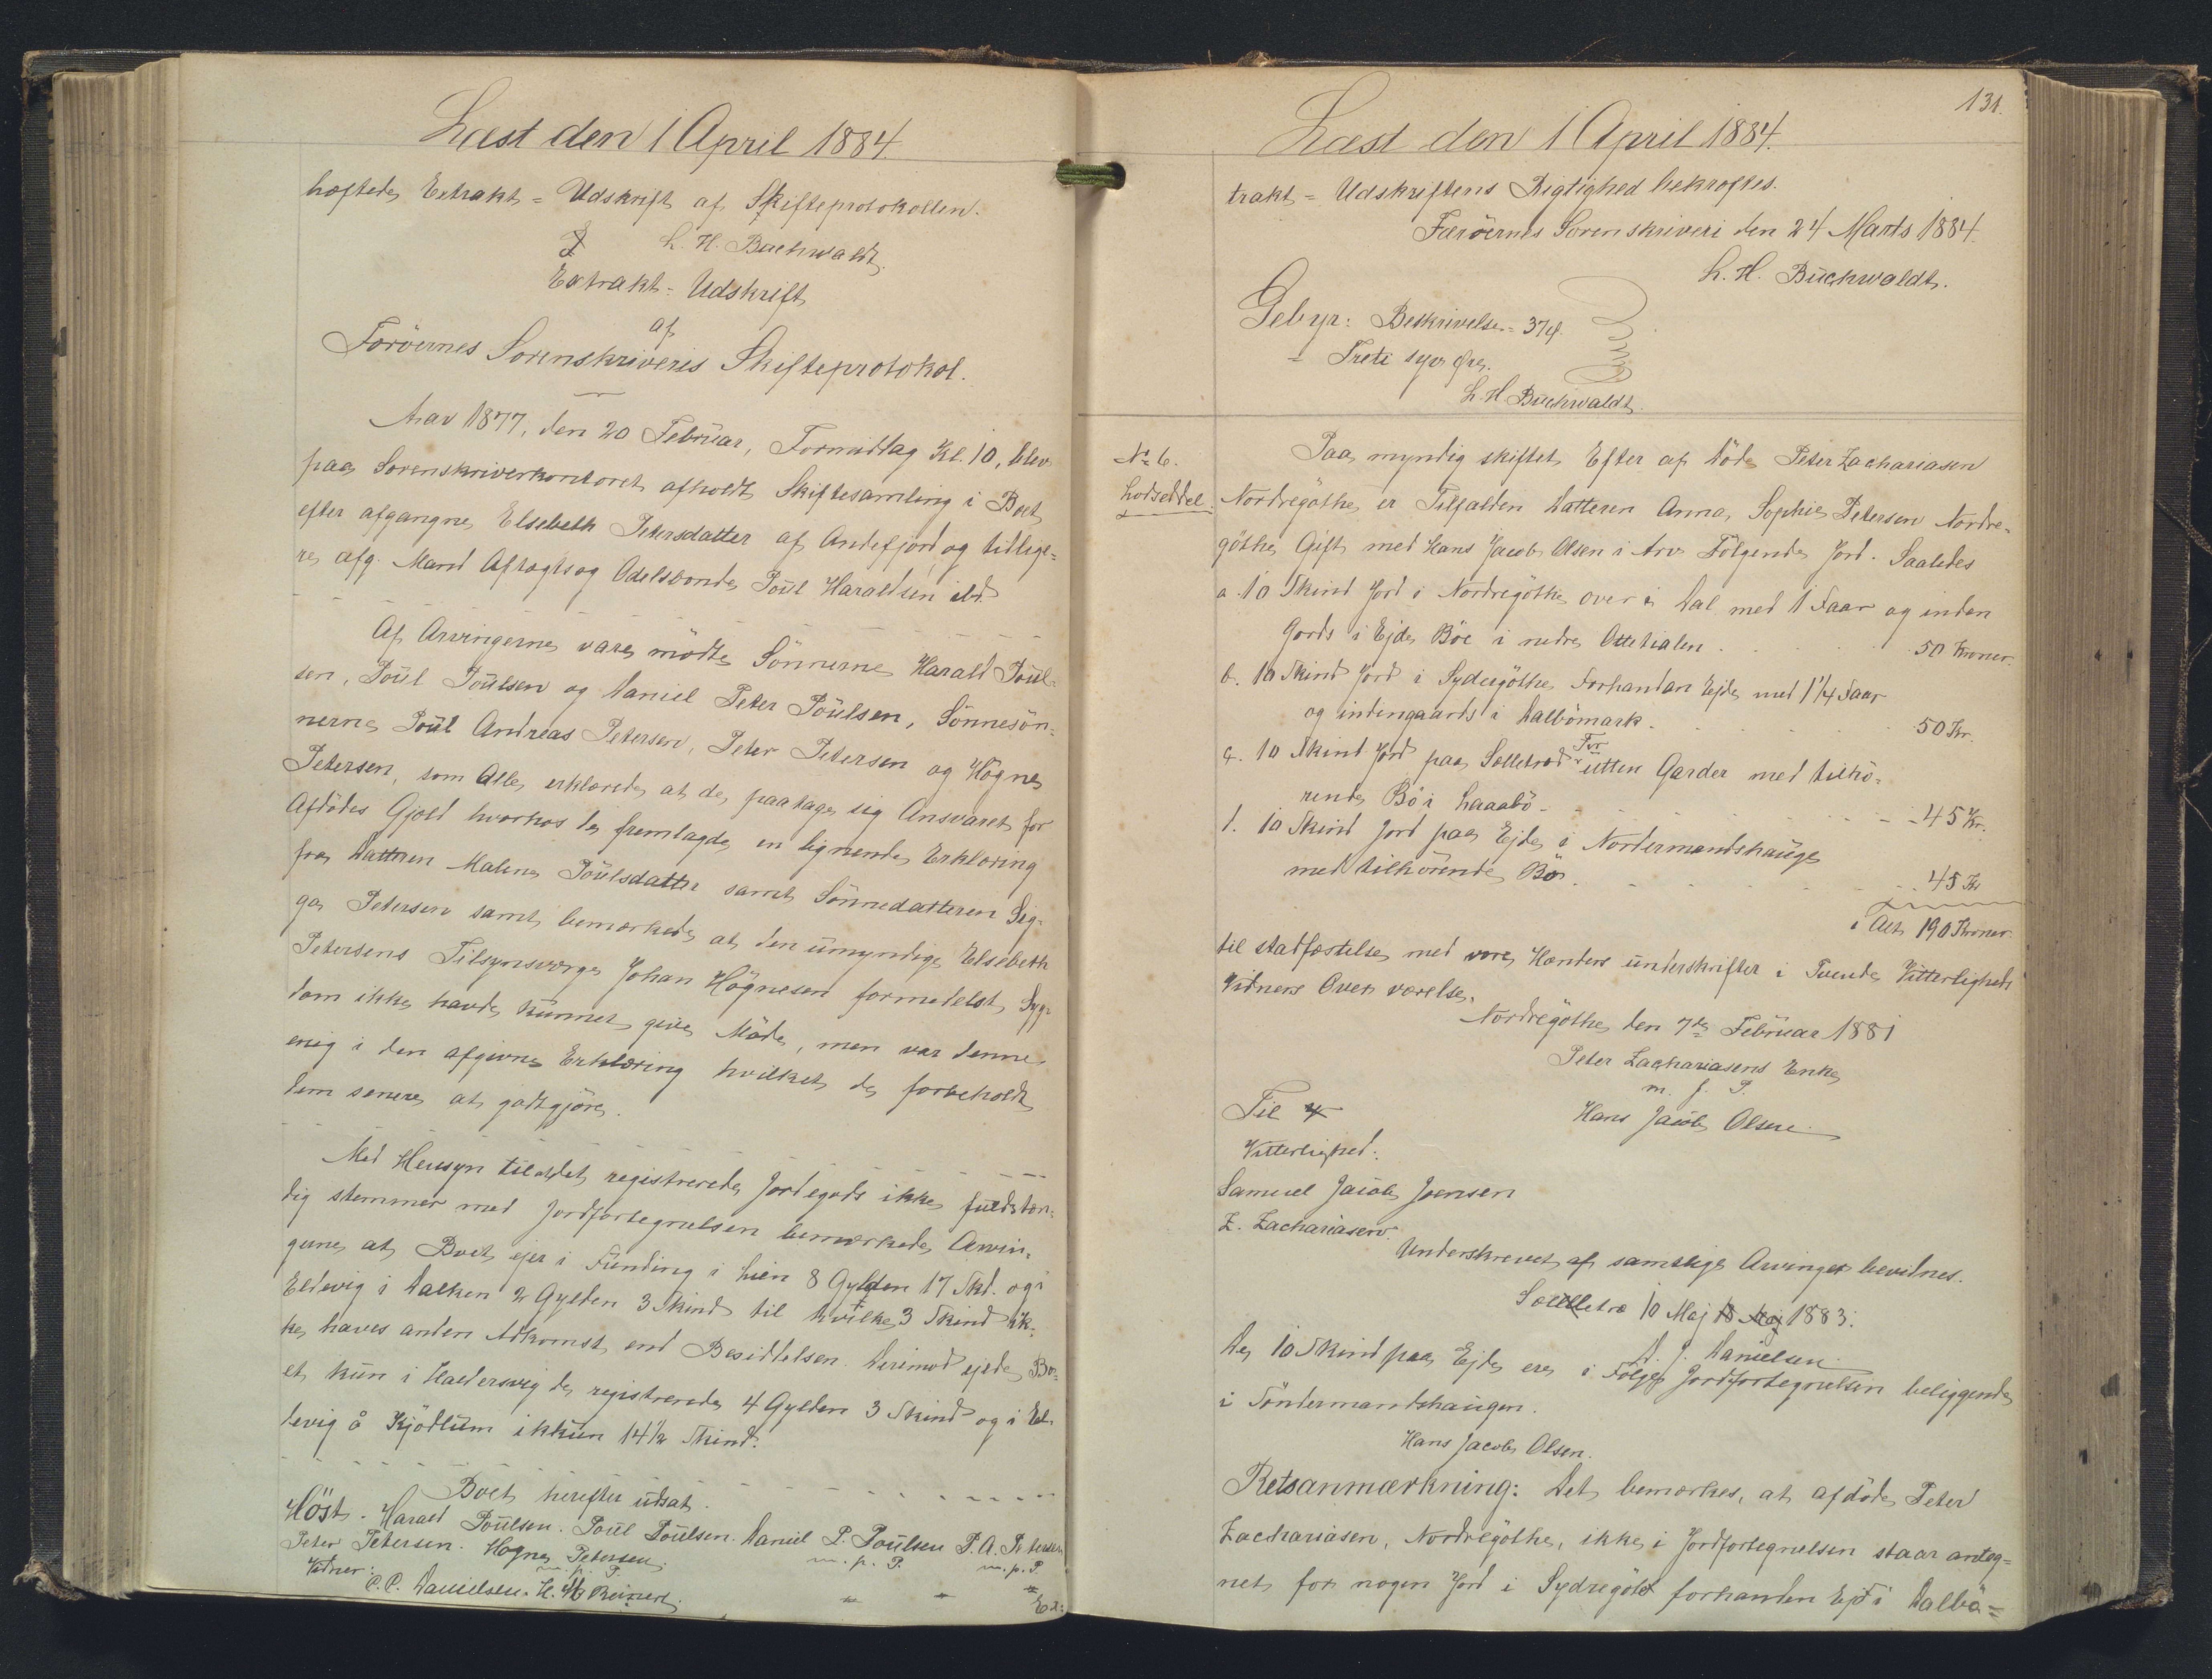 Læst den 1 April 1884.
hæftede Extrakt = Udskrift af Skifteprotokollen.
L. H. Buchwaldt.
Extrakt = Udskrift
af
Færöernes Sorenskriveris Skifteprotokol.
Aar 1877, den 20 Februar, Formiddag Kl. 10, blev
paa Sorenskriverkontoret afholdt Skiftesamling i Boet
efter afgangne Elsebeth Petersdatter af Andefjord og tidlige=
re afg. Mand Aftægts og Odelsbonde Poul Haraldsen ibd.
Af Arvingerne vare mödte Sönnerne Harald Poul=
sen, Poul Poulsen og Daniel Peter Poulsen, Sönnesön=
nerne Poul Andreas Petersen, Peter Petersen og Högne
Petersen, som Alle erklærede at de paatage sig Ansvaret for
Afdödes Gjæld hvorhos de fremlagde en lignende Erklæring
fra Datteren Malene Poulsdatter samt Sönnedatteren Sig=
ga Petersen samt bemærkede at den umyndige Elsebeth
Petersens Tilsynsværge Johan Högnesen formedelst Syg=
dom ikke havde kunnet give Möde, men var denne
enig i den afgivne Erklæring hvilket de forbeholdt
dem senere at godtgjöre.
Med Hensyn til at det registrerede Jordegods ikke fuldstæn=
dig stemmer med Jordfortegnelsen bemærkede Arvin=
gerne at Boet ejer i Funding i Lien 8 Gylden 17 Skd. og i
Eldevig i Dalken 2 Gylden 3 Skind til hvilke 3 Skind ik=
ke haves anden Adkomst end Besiddelsen. Derimod ejede Bo=
et kun i Haldersvig de registrerede 4 Gylden 3 Skind og i El=
devig å Kjödlum ikkun 14½ Skind.
Boet herefter udsat.
Höst. Harald Poulsen. Poul Poulsen. Daniel P. Poulsen P. A. Petersen
Peter Petersen. Högne Petersen. m. p. P. m. p. P.
Vidner: m. p. P.
P. P. Danielsen. H. M. Reinert.
Ex=
131.
Læst den 1 April 1884.
trakt = Udskriftens Rigtighed bekræftes.
Færöernes Sorenskriveri den 24 Marts 1884.
L. H. Buchwaldt.
Gebyr: Beskrivelse = 37 Ø.
= Treti syv Øre.
L. H. Buchwaldt.
No 6.
Lodseddel.
Paa myndig skiftet Efter af döde Peter Zachariasen
Nordregöthe er Tilfalden Datteren Anna Sophie Petersen Nordre=
göthe Gift med Hans Jacob Olsen i Arv Fölgende Jord. Saaledes
a. 10 Skind Jord i Nordregöthe over i Dal med 1 Faar og inden
Gards i Ejde Böe i nedre Ottetialen . 50 Kroner.
b. 10 Skind Jord i Sydregöthe Forhandan Ejde med 1 1/4 Faar
og indengaards i Dalbömark . 50 Kr.
c. 10 Skind Jord paa Selletræd For utten Garder med tilhö=
rende Bö i Laaabö - 45 Kr.
d. 10 Skind Jord paa Ejde i Nordermandshauge
med tilhörende Bö . 45 Kr
i Alt 190 Kroner.
til stadfæstelse med vore Hænders underskrifter i Tvende Vitterligheds
Vidners Over værelse.
Nordregöthe den 7de Februar 1881
Peter Zachariasens Enke
m. f. P.
Hans Jacob Olsen
Til
Vitterlighed:
Samuel Jacob Joensen
Z. Zachariasen.
Underskrevet af samtlige Arvinger bevidnes.
Selletræ 10 Maj 18 Maj 1883.
D. J. Danielsen.
De 10 Skind paa Ejde ere i Fölge Jordfortegnelsen beliggende
i Söndermandshaugen.
Hans Jacob Olsen.
Retsanmærkning: Det bemærkes, at afdöde Peter
Zachariasen, Nordregöthe, ikke i Jordfortegnelsen staar anteg=
net for nogen Jord i Sydregöte forhanden Ejd i Dalbö=